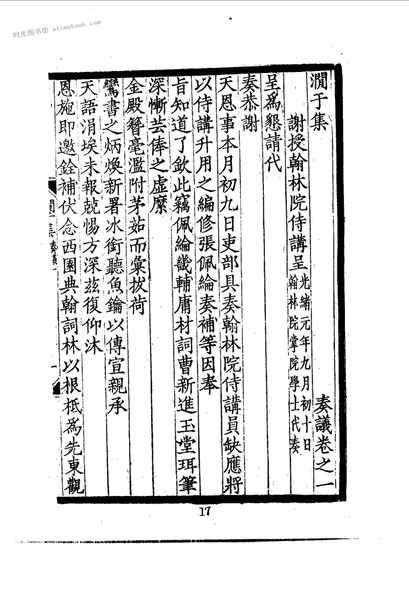 时光图书馆 mtimebook.com
澗于集
奏議卷之一
謝授翰林院侍講呈
光緒元年九月初十日
翰林院掌院學士代奏
呈爲懇請代
奏恭謝
天恩事本月初九日吏部具奏翰林院侍講員缺應將
以侍講升用之編修張佩綸奏補等因奉
旨知道了欽此竊佩綸畿輔庸材詞曹新進玉堂珥筆
深慚芸俸之虛縻
金殿簪毫濫附茅茹而彙拔荷
鸞書之炳煥新署冰銜聽魚鑰以傳宣親承
天語涓埃未報兢惕方深茲復仰沐
恩施即邀銓補伏念西園典翰詞林以根柢爲先東觀
澗于集
17